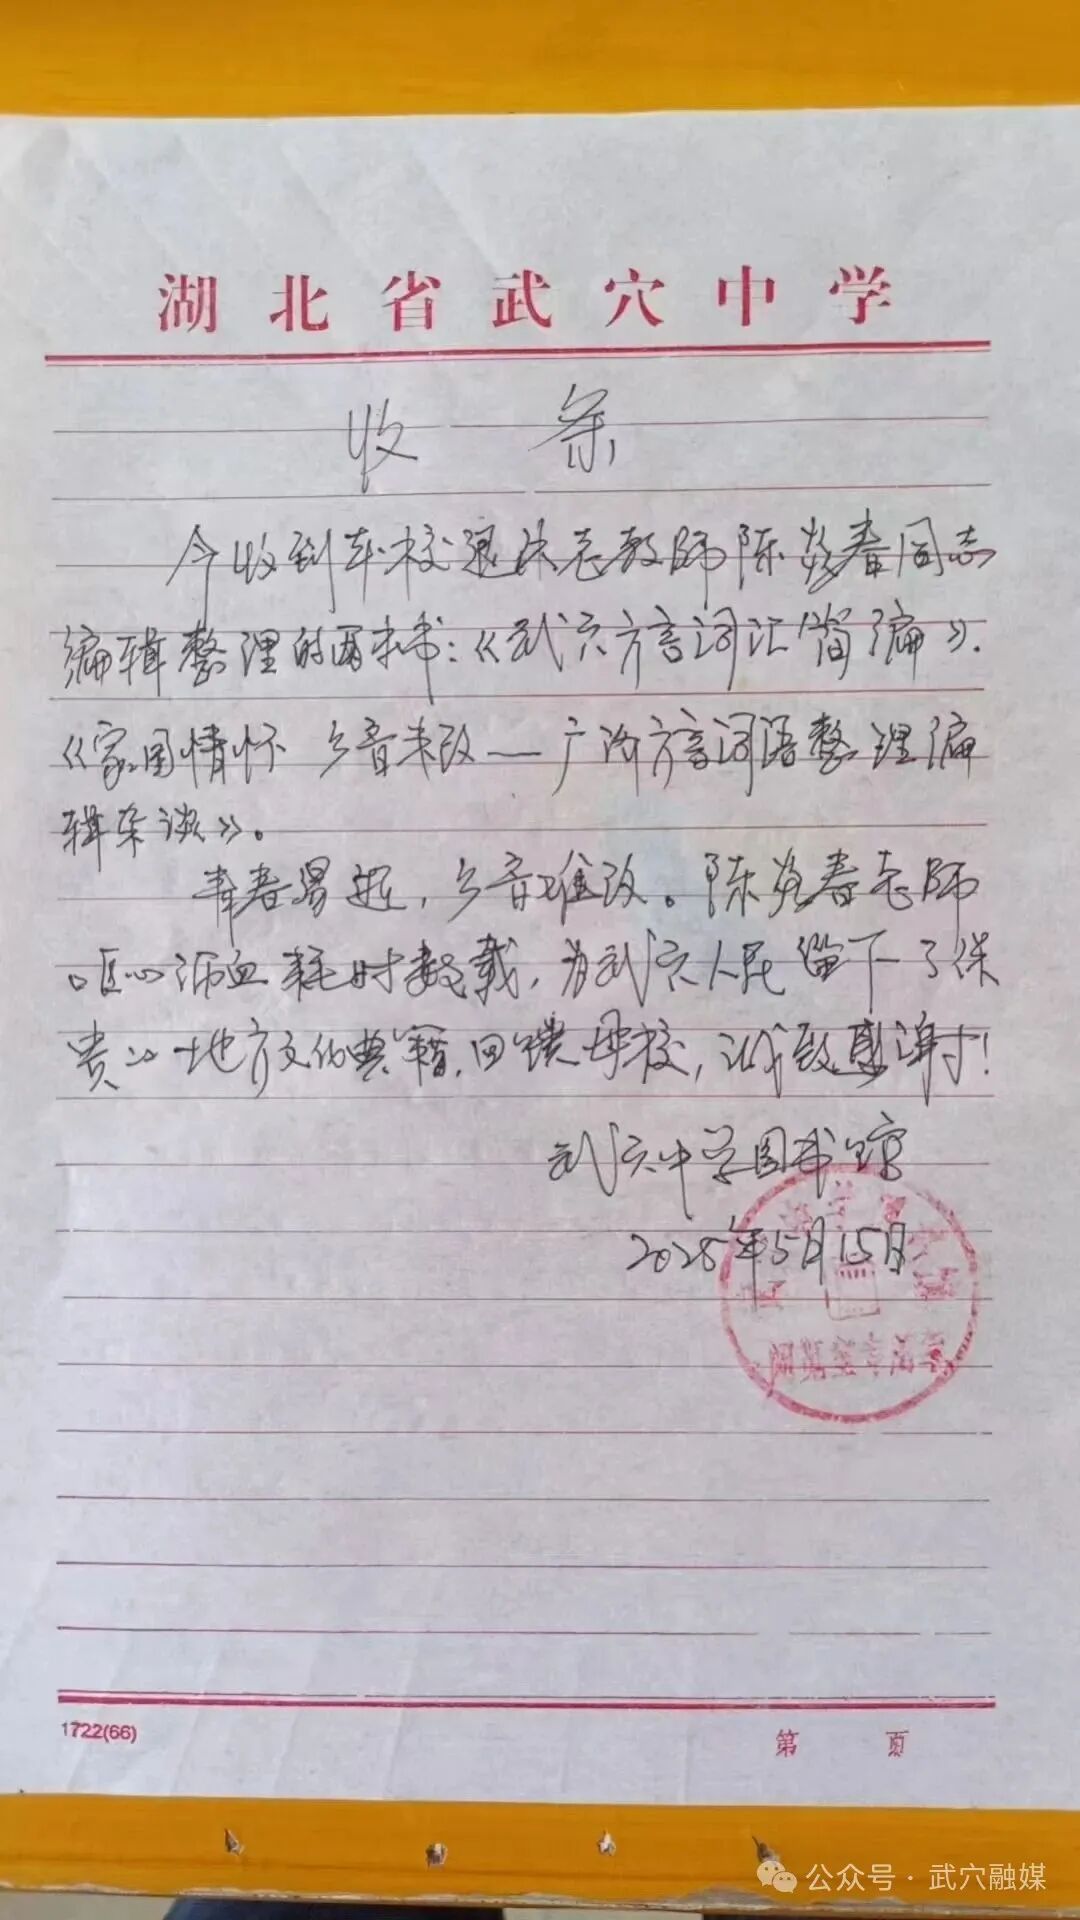 湖北省武穴中学
收条
今收到本校退休老教师陈炎春同志
编辑整理的两本书：《武穴方言词汇简编》.
《家国情怀 乡音未改——广济方言词语整理编
辑杂谈》。
青春易逝，乡音难改。陈炎春老师
呕心沥血耗时数载，为武穴人民留下了珍
贵的地方文化典籍.回馈母校，诚致感谢！
武穴中学图书馆
2025年5月15日
1722(66)
第 页
公众号·武穴融媒